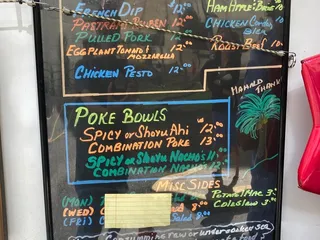 French Dip 12.00
Ham Apple Brie 10
Pastrami Reuben 12.00
Chicken
Pulled Pork 12.00
Eggplant Tomato & 12.00
Mozzarella
Roast Beef 10
Chicken Pesto 12.00
Mahalo
Poke Bowls
Spicy or Shoyu Ahi 12.00
Combination Poke 13.00
Spicy or Shoyu Nachos 11.00
Combination Nachos
Misc Sides
(Mon)
(Wed)
(Fri)
8.00
Salad 8.00
Potato Mac 3.
Coleslaw 3.00
Consuming raw or undercooked sea